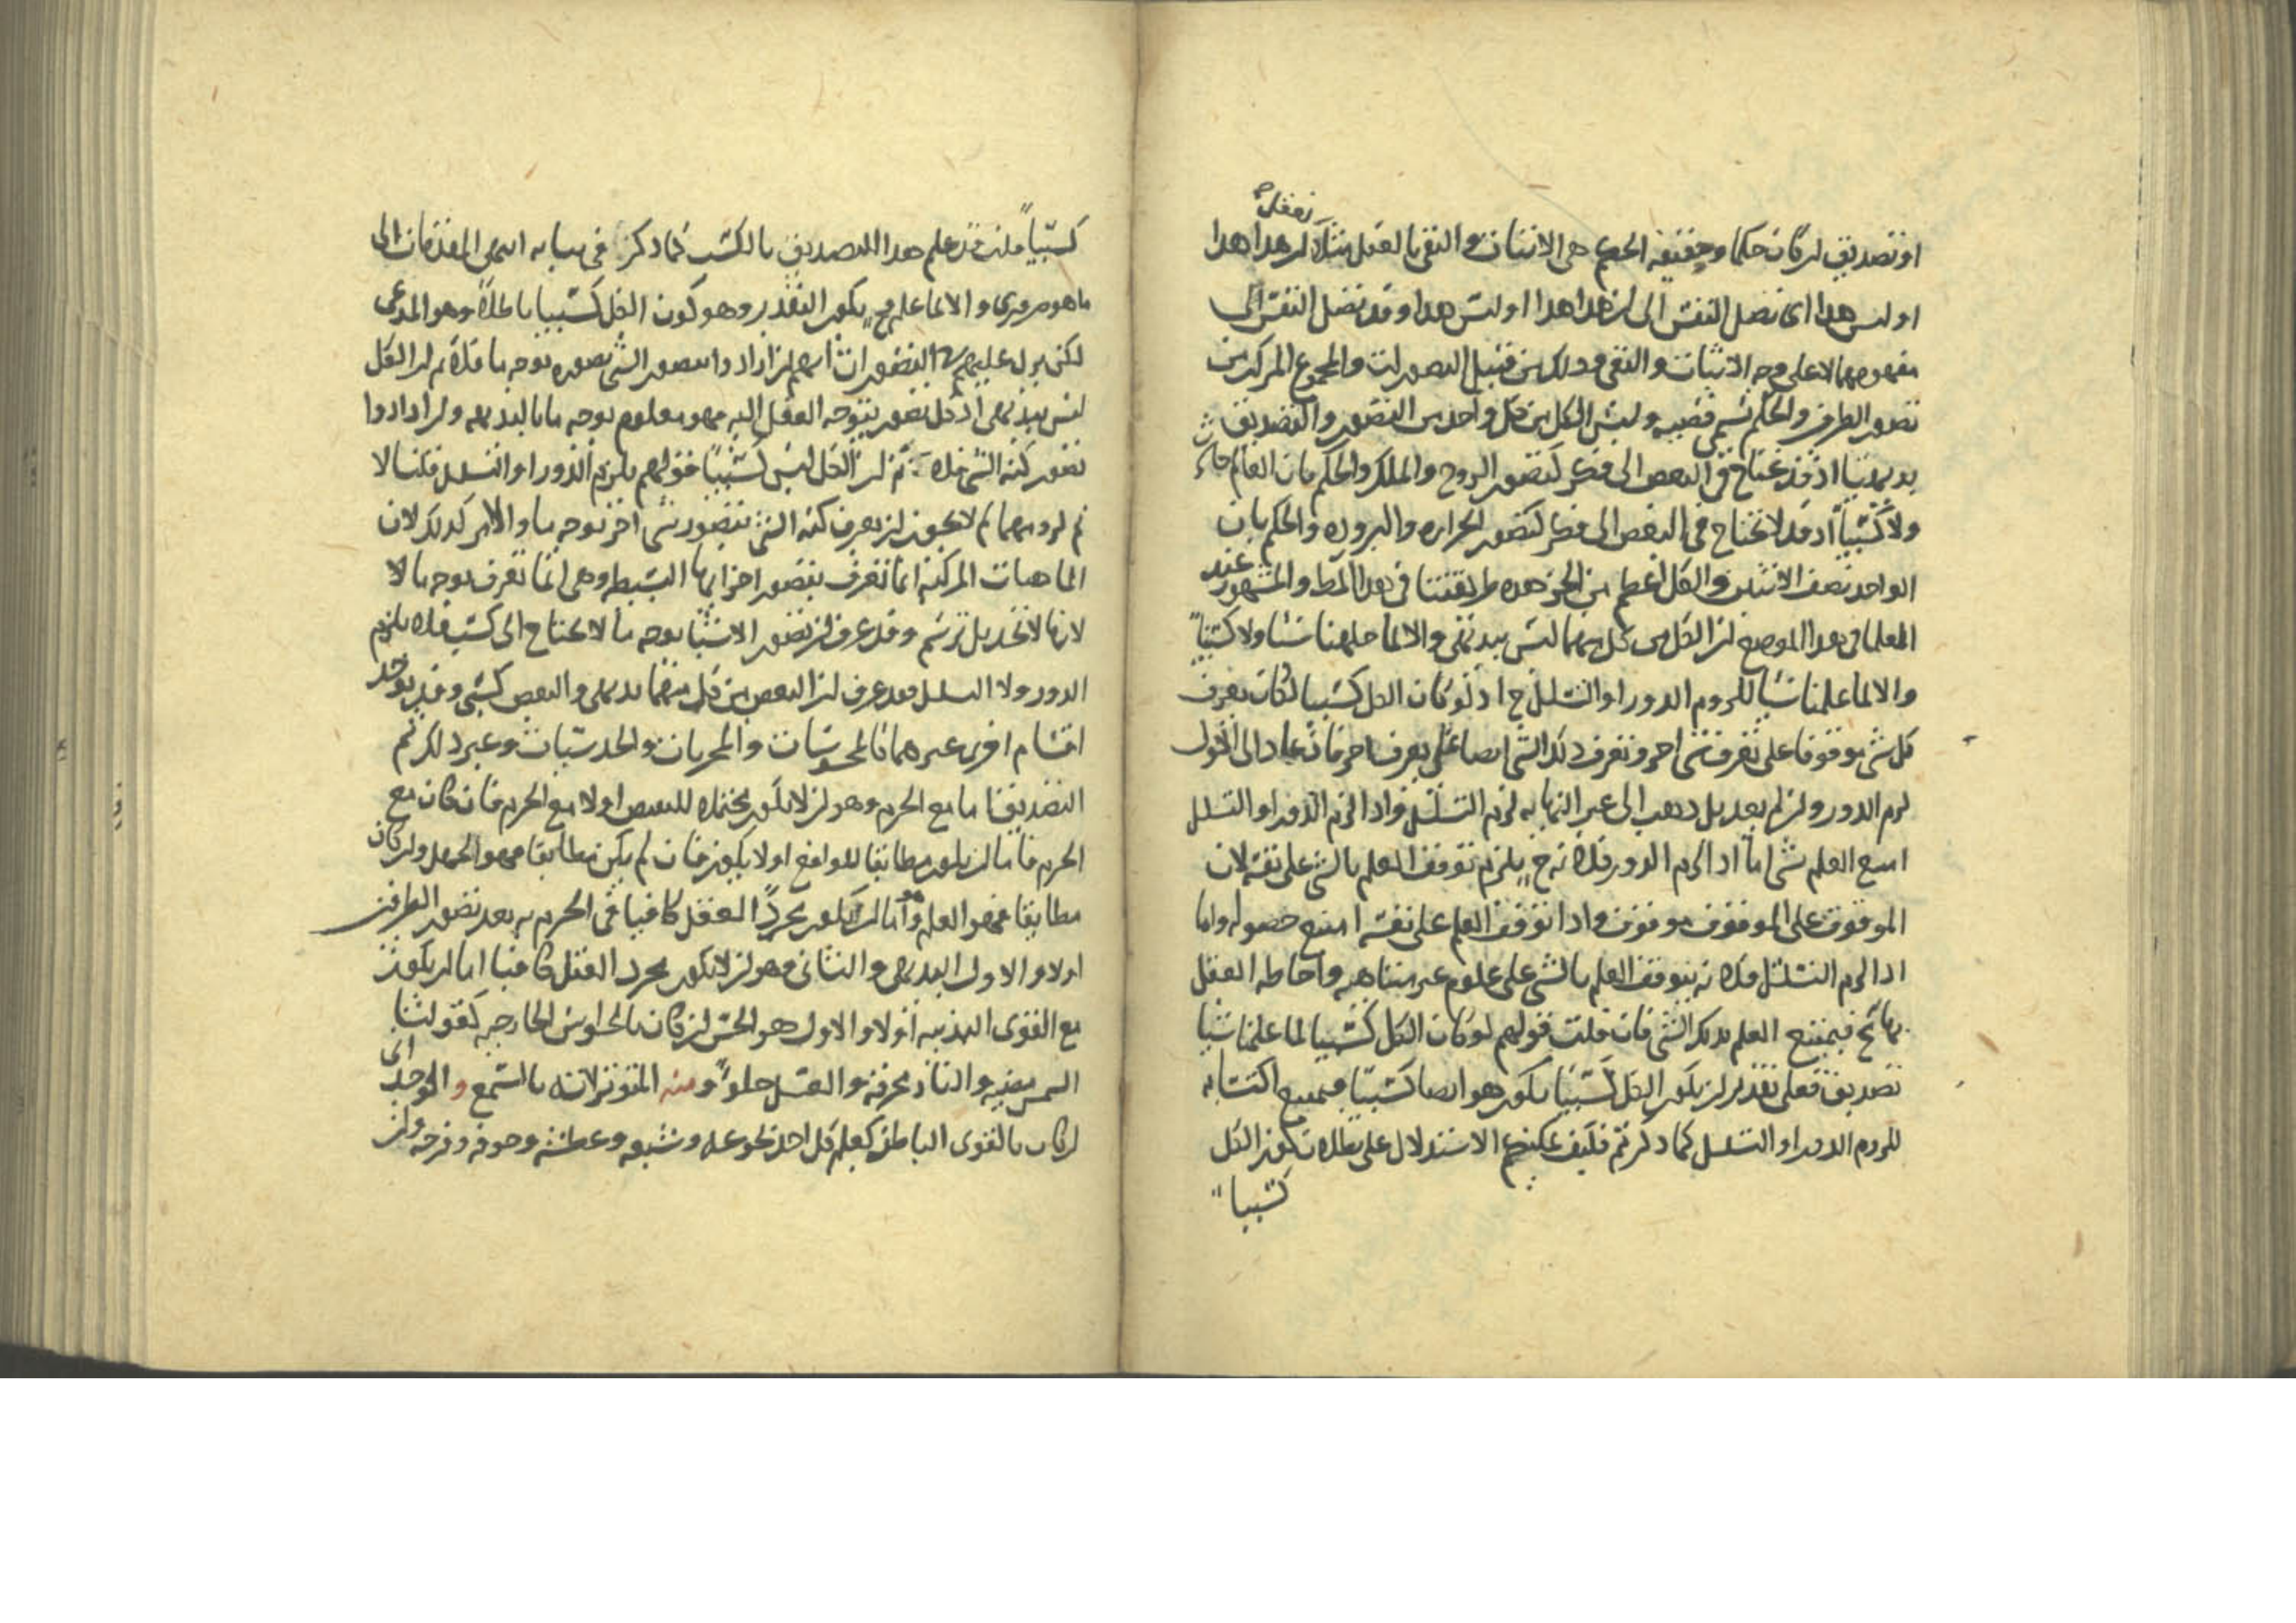 تعقل
او تصديق ان كان حكما وحقيقة الحكم هى الاثبات والنفى بالعقل مثلا ان هذا هذا
او ليس هذا اى تصل النفس الى ان هذا هذا او ليس هذا وقد تصل النفس الى
مفهومهما لا على وجه الاثبات والنفى وذلك من قبيل التصورات والمجموع المركب من
تصور الطرفين والحكم تسمى قضيه وليس الكل من كل واحد من التصور والتصديق
بديهيا اذ قد يحتاج فى البعض الى فكر كتصور الروح والملك والحكم بان العالم حادث
ولا كسبيا اذ قد لا تحتاج فى البعض الى فكر كتصور الحراره والبروده والحكم بان
الواحد نصف الاثنين والكل اعظم من الجزء هذه طريقتنا فى هذا النمط والمشهور عند
العلما فى هذا الموضع ان الكل من كل منهما ليس بديهى والا لما جهلنا شيئا ولا كسبيا
والا لما علمنا شيا للزوم الدور او التسلسل ح اذ لو كان الكل كسبيا لكان يعرف
كل شى موقوفا على تعرف شى اخر وتعرف ذلك الشى ايضا على تعرف اخر فان عاد الى الاول
لزم الدور وان لم يعد بل ذهب الى غير النهايه لزم التسلسل واذا لزم الدور او التسلسل
امتنع العلم بشى اما اذا لزم الدور فلانه ح يلزم توقف العلم بالشى على نفسه لان
الموقوف على الموقوف موقوف واذا توقف العلم على نفسه امتنع حصوله واما
اذا لزم التسلسل فلانه يتوقف العلم بالشى على علوم غير متناهيه واحاطه العقل
بها مح فيمتنع العلم بذلك الشى فان قلت قولهم لو كان الكل كسبيا لما علمنا شيا
تصديق فعلى تقدير ان يكون الكل كسبيا يكون هو ايضا كسبيا فيمتنع اكتسابه
للزوم الدور او التسلسل كما ذكرتم فكيف يمكنكم الاستدلال على بطلان كون الكل
كسبيا
كسبيا قلت قد علم هذا التصديق بالكسب كما ذكر فى بيانه انتهى المقدمات الى
ما هو ضرورى والا لما علم ح يكون التقدير وهو كون الكل كسبيا باطلا وهو المدعى
لكن يرد عليهم فى التصورات انهم ان ارادوا بتصور الشى تصوره بوجه ما فلا نم ان الكل
ليس بديهى اذ كل تصور يتوجه العقل اليه فهو معلوم بوجه ما بالبديهه وان ارادوا
تصور كنه الشى فلا نم ان الكل ليس كسبيا قولهم يلزم الدور او التسلسل قلنا لا
نم لزومهما لم لا يجوز ان يعرف كنه الشى بتصور شى اخر بوجه ما والامر كذلك لان
الماهيات المركبه انما تعرف بتصور اجزائها البسيطه وهى انما تعرف بوجه ما لا
لانها لا تحد بل ترسم وقد عرف ان تصور الاشيا بوجه ما لا يحتاج الى كسب فلا يلزم
الدور ولا التسلسل فقد عرف ان البعض من كل منهما بديهى والبعض كسبى وقد يوجد
اقسام اخرى غيرهما كالمحسوسات والمجربات والحدسيات وغير ذلك ثم
التصديق اما مع الجزم وهو ان لا يكون محتملا للنقيض اولا مع الجزم فان كان مع
الجزم فاما ان يكون مطابقا للواقع اولا يكون فان لم يكن مطابقا فهو الجهل وان كان
مطابقا فهو العلم وهو اما ان يكون مجرد العقل كافيا فى الجزم به بعد تصور الطرفين
اولا والاول البديهى والثانى وهو ان لا يكون مجرد العقل كافيا اما ان يكون
مع القوى البدنيه اولا والاول هو الحس ان كان بالحواس الخارجيه كقولنا
الشمس مضيه والنار محرقه والعسل حلو ومنه المتواتر لانه بالسمع والوجدانى
ان كان بالقوى الباطنه كعلم كل احد بجوعه وشبعه وعطشه وخوفه وفرحه وان